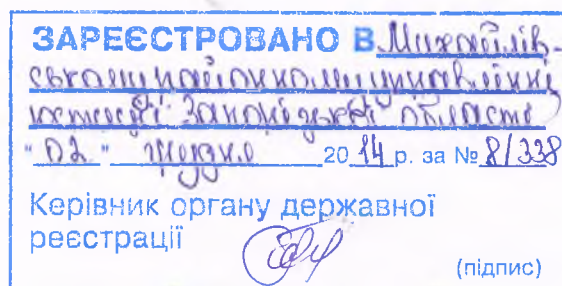 ЗАРЕЄСТРОВАНО В Михайлів-
ському районному управлінні
юстиції Запорізької області
"02" жовтня 2014 р. за № 8/338
Керівник органу державної
реєстрації
(підпис)